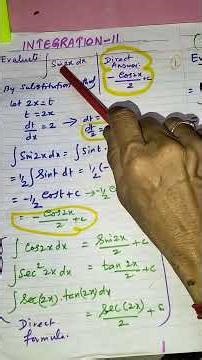 INTEGRATION-II
Evaluate ∫ Sin2x dx
Direct
Answer:
-Cos2x/2 + c
By Substitution
let 2x = t
t = 2x
dt/dx = 2 → dt =
∫ Sin2x dx = ∫ Sint.
= 1/2 ∫ Sint dt = 1/2 (-
= -1/2 Cost + c →
= -Cos2x/2 + c
∫ Cos2x dx = Sin2x/2 + c
∫ Sec² 2x dx = tan2x/2 + c
∫ Sec(2x) tan(2x) dx
= Sec(2x)/2 + c
Direct
formula.